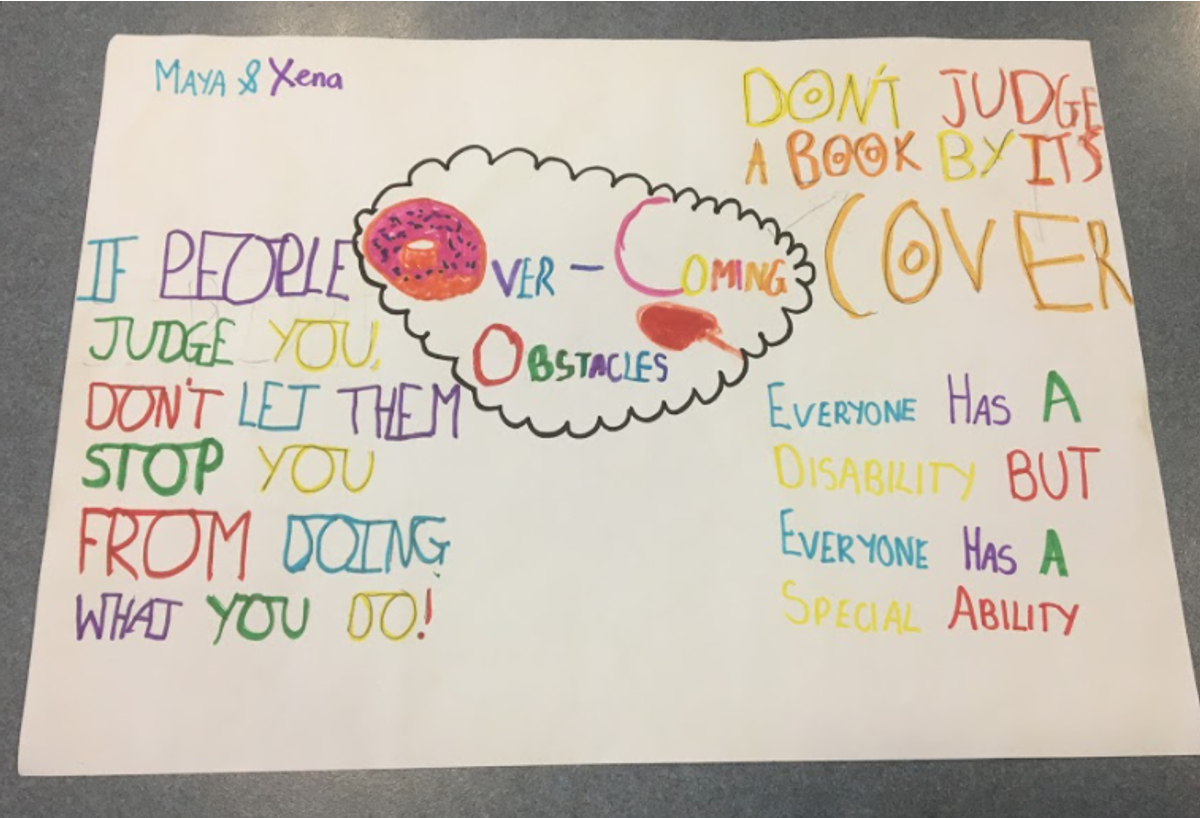 MAYA & Xena
DON'T JUDGE
A BOOK BY IT'S
COVER
OVER - COMING
OBSTACLES
IF PEOPLE
JUDGE YOU,
DON'T LET THEM
STOP YOU
FROM DOING
WHAT YOU DO!
EVERYONE HAS A
DISABILITY BUT
EVERYONE HAS A
SPECIAL ABILITY